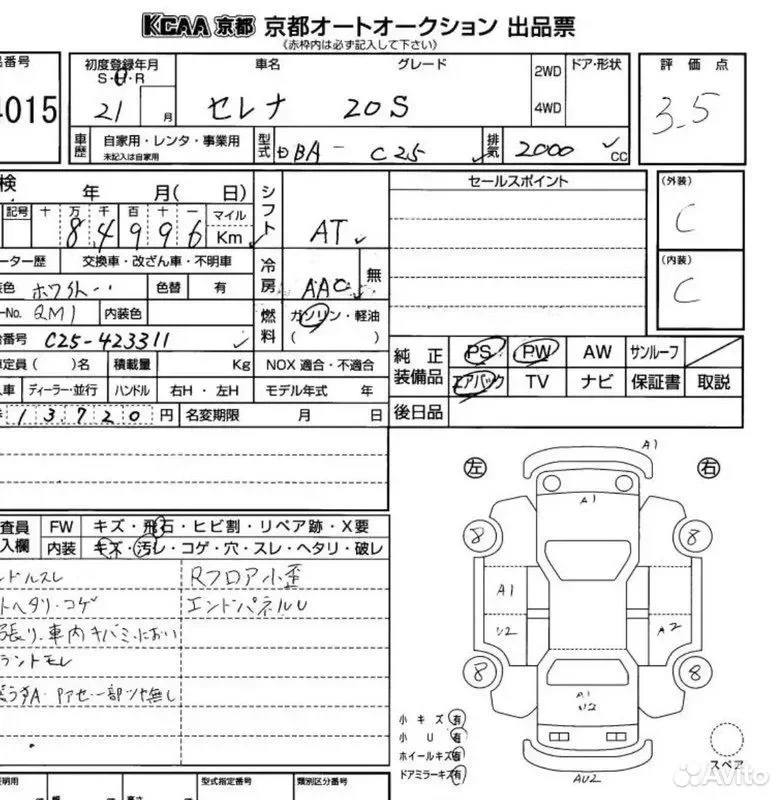 KCAA 京都 京都オートオークション 出品票
(赤枠内は必ず記入して下さい)
品番号
4015
初度登録年月
S・H・R
21 月
車名 グレード
セレナ 20S
2WD
4WD
ドア・形状
評価点
3.5
車歴
自家用・レンタ・事業用
未記入は自家用
型式
DBA - C25
排気
2000 cc
検 年 月( 日)
シフト
AT
セールスポイント
(外装)
C
(内装)
C
記号 十 万 千 百 十 一 マイル
8 4 9 9 6 Km
ーター歴 交換車・改ざん車・不明車
冷房
AAC 無
装色 ホワイト 色替 有
ーNo. QM1 内装色
燃料
ガソリン・軽油
( )
番号 C25-423311
定員( )名 積載量 Kg NOX 適合・不適合
純正装備品
PS PW AW サンルーフ
エアバック TV ナビ 保証書 取説
入車 ディーラー・並行 ハンドル 右H・左H モデル年式 年
後日品
13720 円 名変期限 月 日
左 右
A1
A1
8 8
A1
U2 A2
8 8
A1
U2
AU2
査員
入欄
FW キズ・飛石・ヒビ割・リペア跡・X要
内装 キズ・汚レ・コゲ・穴・スレ・ヘタリ・破レ
ドルスレ Rフロア小歪
トヘタリ・コゲ エンドパネルU
張り、車内キバミ・におい
ラントモレ
一部ツヤ無し
小キズ 有
小U 有
ホイールキズ 有
ドアミラーキズ 有
スペア
証明用
型式指定番号 類別区分番号
幅 高さ
Avito